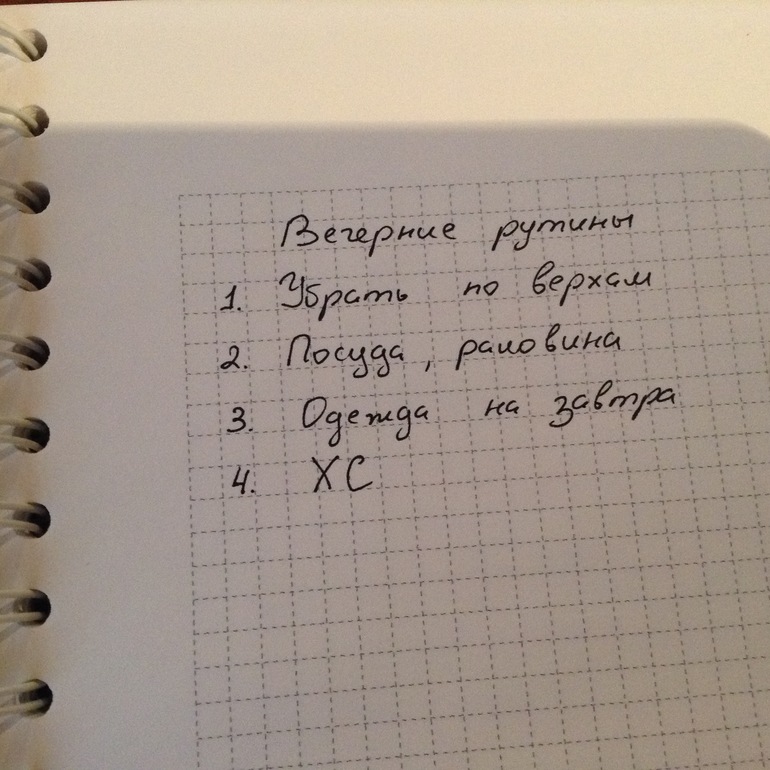 Вечерние рутины
1. Убрать по верхам
2. Посуда, раковина
3. Одежда на завтра
4. ХС